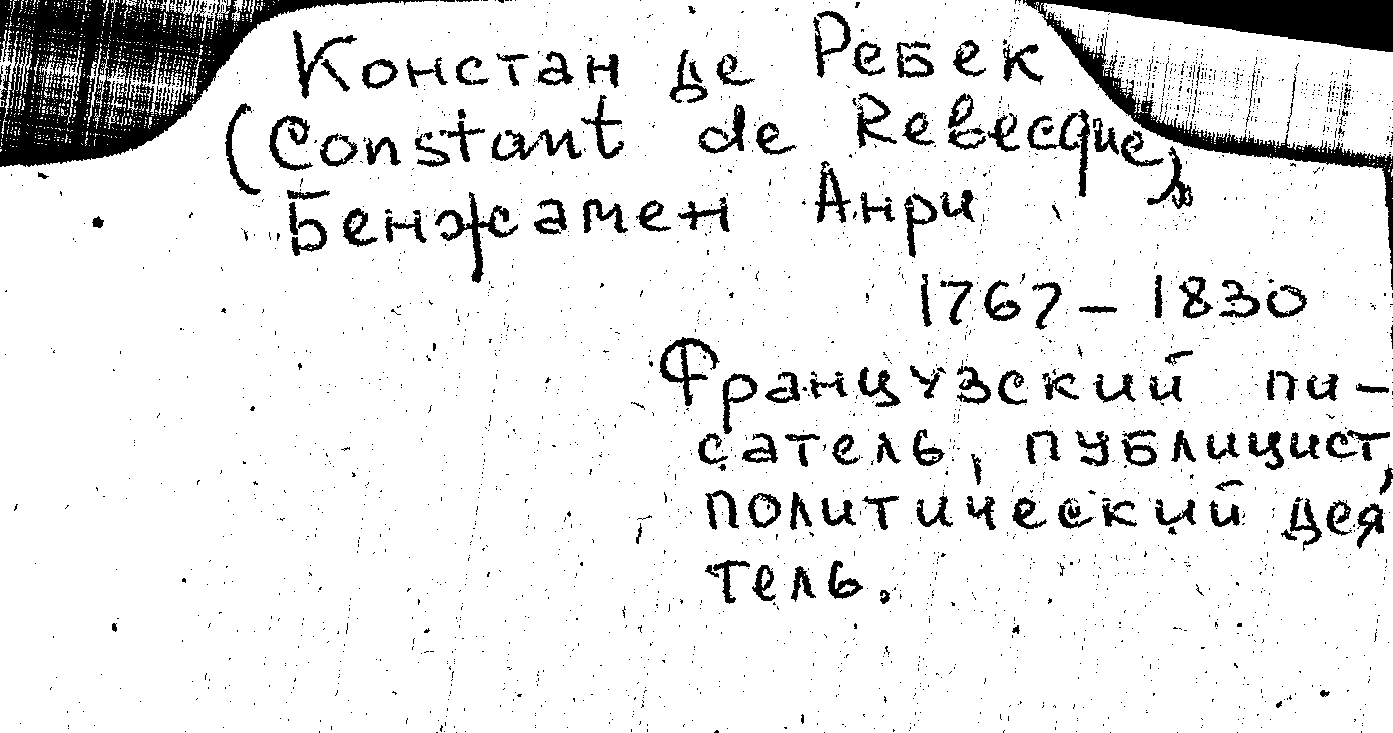 Констан де Ребек
(Constant de Rebecque)
Бенжамен Анри
1767 – 1830
Французский пи-
сатель, публицист,
политический дея
тель.